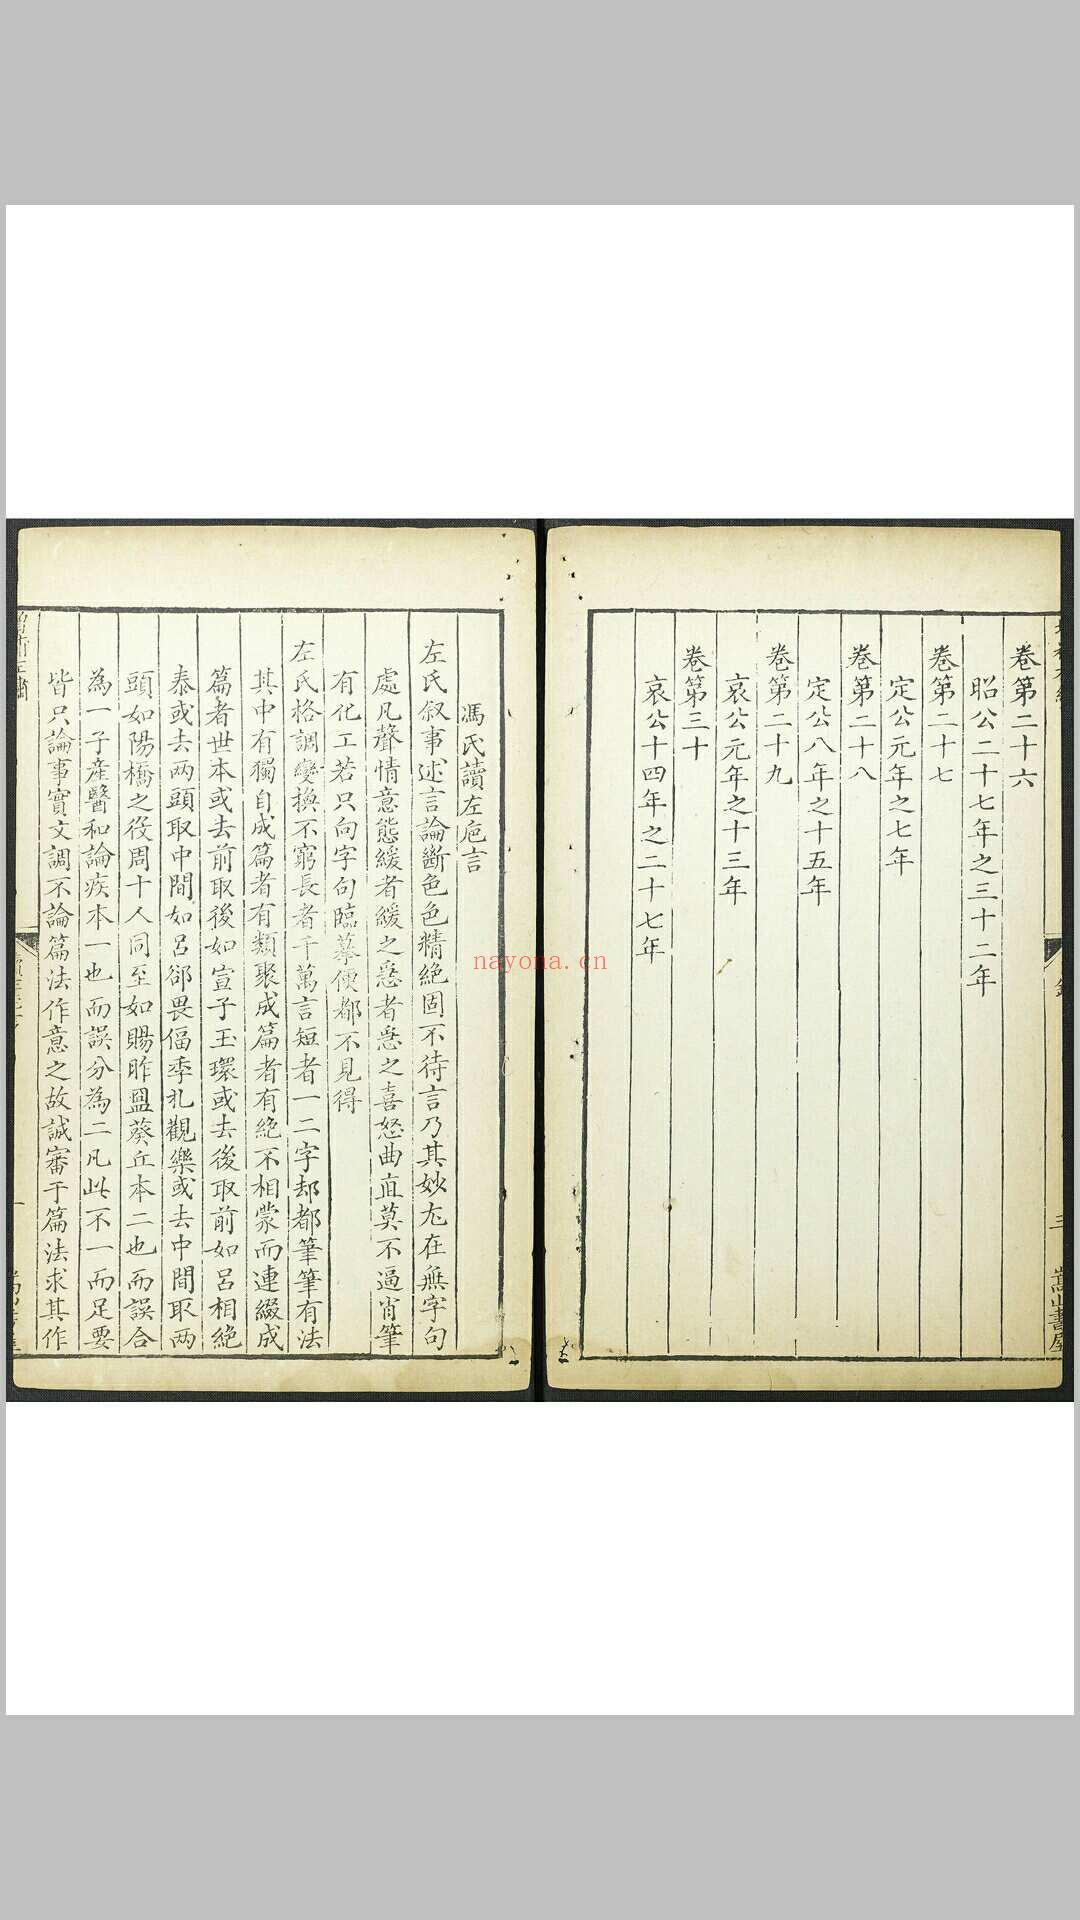 卷第二十六
昭公二十七年之三十二年
卷第二十七
定公元年之七年
卷第二十八
定公八年之十五年
卷第二十九
哀公元年之十三年
卷第三十
哀公十四年之二十七年
三
嵩山書屋
馮氏讀左巵言
左氏叙事述言論斷色色精絶固不待言乃其妙尤在無字句
處凡聲情意態緩者緩之急者急之喜怒曲直莫不逼肖筆
有化工若只向字句臨摹便都不見得
左氏格調變換不窮長者千萬言短者一二字却都筆筆有法
其中有獨自成篇者有類聚成篇者有絶不相蒙而連綴成
篇者世本或去前取後如宣子玉環或去後取前如呂相絶
秦或去兩頭取中間如呂郤畏偪季札觀樂或去中間取兩
頭如陽橋之役周十人同至如賜胙盟葵丘本二也而誤合
為一子產醫和論疾本一也而誤分為二凡此不一而足要
皆只論事實文調不論篇法作意之故誠審于篇法求其作
nayona.cn